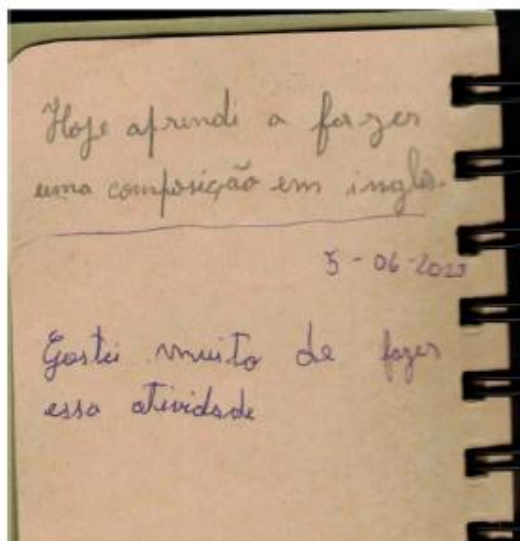 Hoje aprendi a fazer
uma composição em ingles.
5-06-2023
Gostei muito de fazer
essa atividade